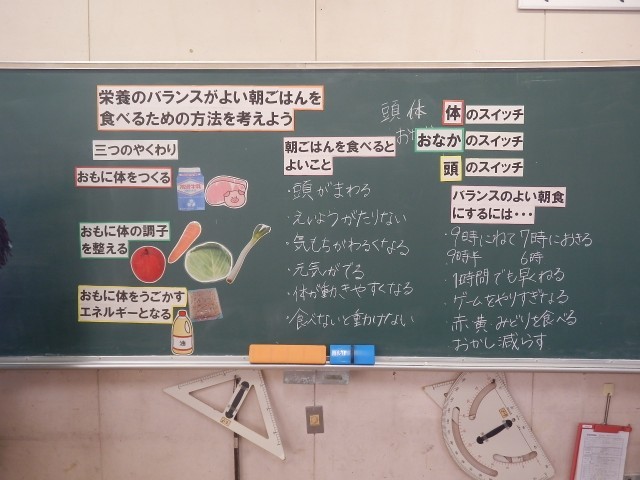 栄養のバランスがよい朝ごはんを
食べるための方法を考えよう
三つのやくわり
おもに体をつくる
おもに体の調子
を整える
おもに体をうごかす
エネルギーとなる
油
朝ごはんを食べると
よいこと
・頭がまわる
・えいようがたりない
・気もちがわるくなる
・元気がでる
・体が動きやすくなる
・食べないと動けない
頭 体
体のスイッチ
おなかのスイッチ
頭のスイッチ
バランスのよい朝食
にするには・・・
・9時にねて7時におきる
9時半 6時
・1時間でも早くねる
・ゲームをやりすぎなる
・赤、黄みどりを食べる
おかし減らす